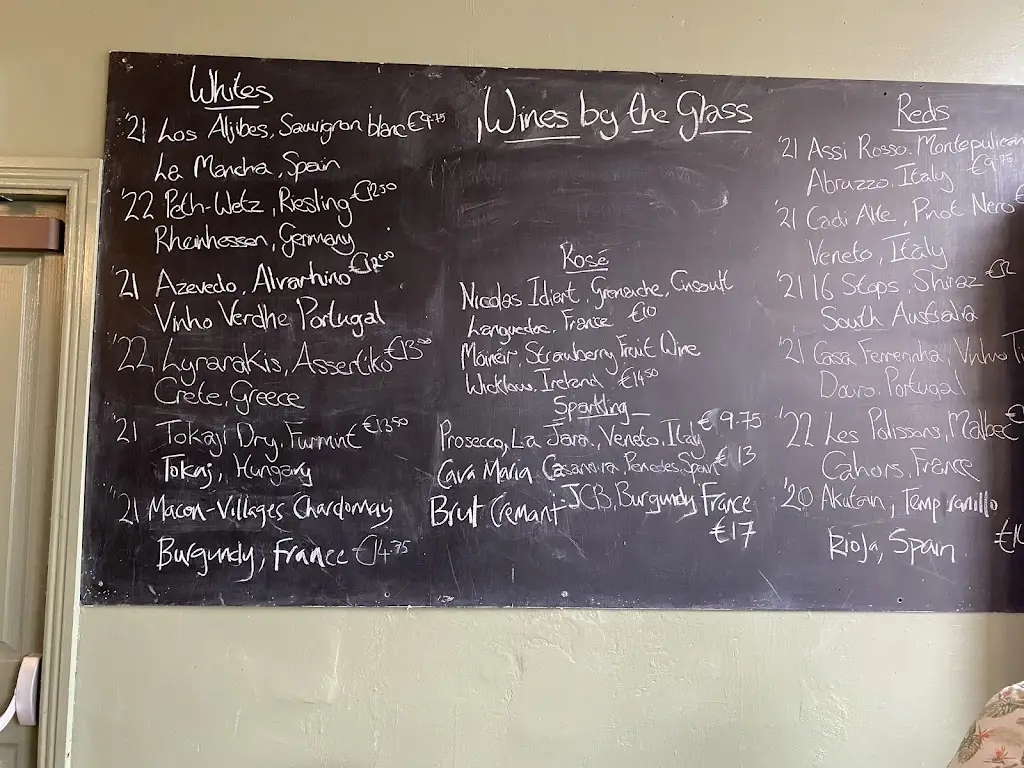 Whites
'21 Los Aljibes, Sauvignon blanc €9.75
La Mancha, Spain
'22 Peth-Wetz, Riesling €12.50
Rheinhessen, Germany
'21 Azevedo, Alvarhino €12.00
Vinho Verdhe Portugal
'22 Lyrarakis, Assertiko €13.00
Crete, Greece
'21 Tokaji Dry, Furmint €13.50
Tokaj, Hungary
'21 Macon-Villages Chardonnay
Burgundy, France €14.75
Wines by the Glass
Rosé
Nicolas Idiart, Grenache, Cinsault
Languedoc, France €10
Móinéir, Strawberry Fruit Wine
Wicklow, Ireland €14.50
Sparkling
Prosecco, La Jara, Veneto, Italy €9.75
Cava Maria Casanova, Penedes, Spain €13
Brut Cremant JCB, Burgundy France
€17
Reds
'21 Assi Rosso, Montepulcian
Abruzzo, Italy €9.75
'21 Cadi Alte, Pinot Nero €
Veneto, Italy
'21 16 Stops, Shiraz €12
South Australia
'21 Casa Ferreirinha, Vinho Ti
Douro, Portugal
'22 Les Polissons, Malbec €
Cahors, France
'20 Akutain, Tempranillo
Rioja, Spain